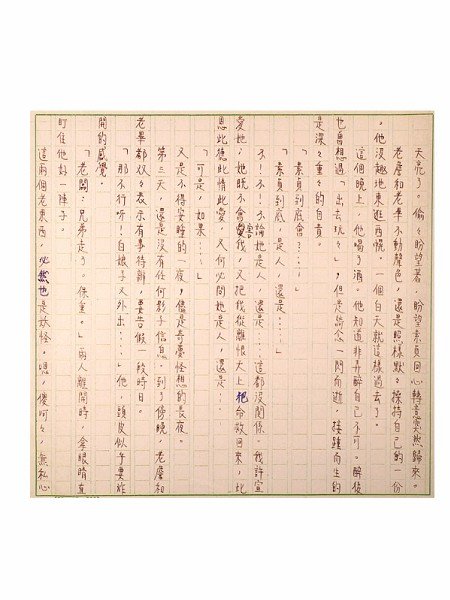 天亮了。偷々盼望著，盼望素貞回心轉意突然歸來。
老詹和老畢不動聲色，還是照樣默々操持自己的一份
，他沒趣地東逛西幌。一個白天就這樣過去了。
這個晚上，他喝了酒。他知道非弄醉自己不可。醉後
也曾想過「出去玩々」，但是詭念一閃而逝，接踵而生的
是深々重々的自責。
「素貞到底會？…」
「素貞到底，是人，還是…」
不！不！不論她是人，還是…這都沒關係。我許宣
愛她，她既不會害我，又把我從離恨天上把命救回來，此
恩此德此情此愛，又何必問她是人，還是…
「可是，如果…」
又是不得安睡的一夜，儘是奇憂怪想的長夜。
第三天，還是沒有任何影子信息。到了傍晚，老詹和
老畢都双々表示有事待辦，要告假一段時日。
「那不行呀！白娘子又外出…」他，頭皮似乎要炸
開的感覺。
「老闆：兄弟走了，保重。」兩人離開時，拿眼睛直
盯住他好一陣子。
這兩個老東西，必然也是妖怪，嗯，傻呵々，無私心